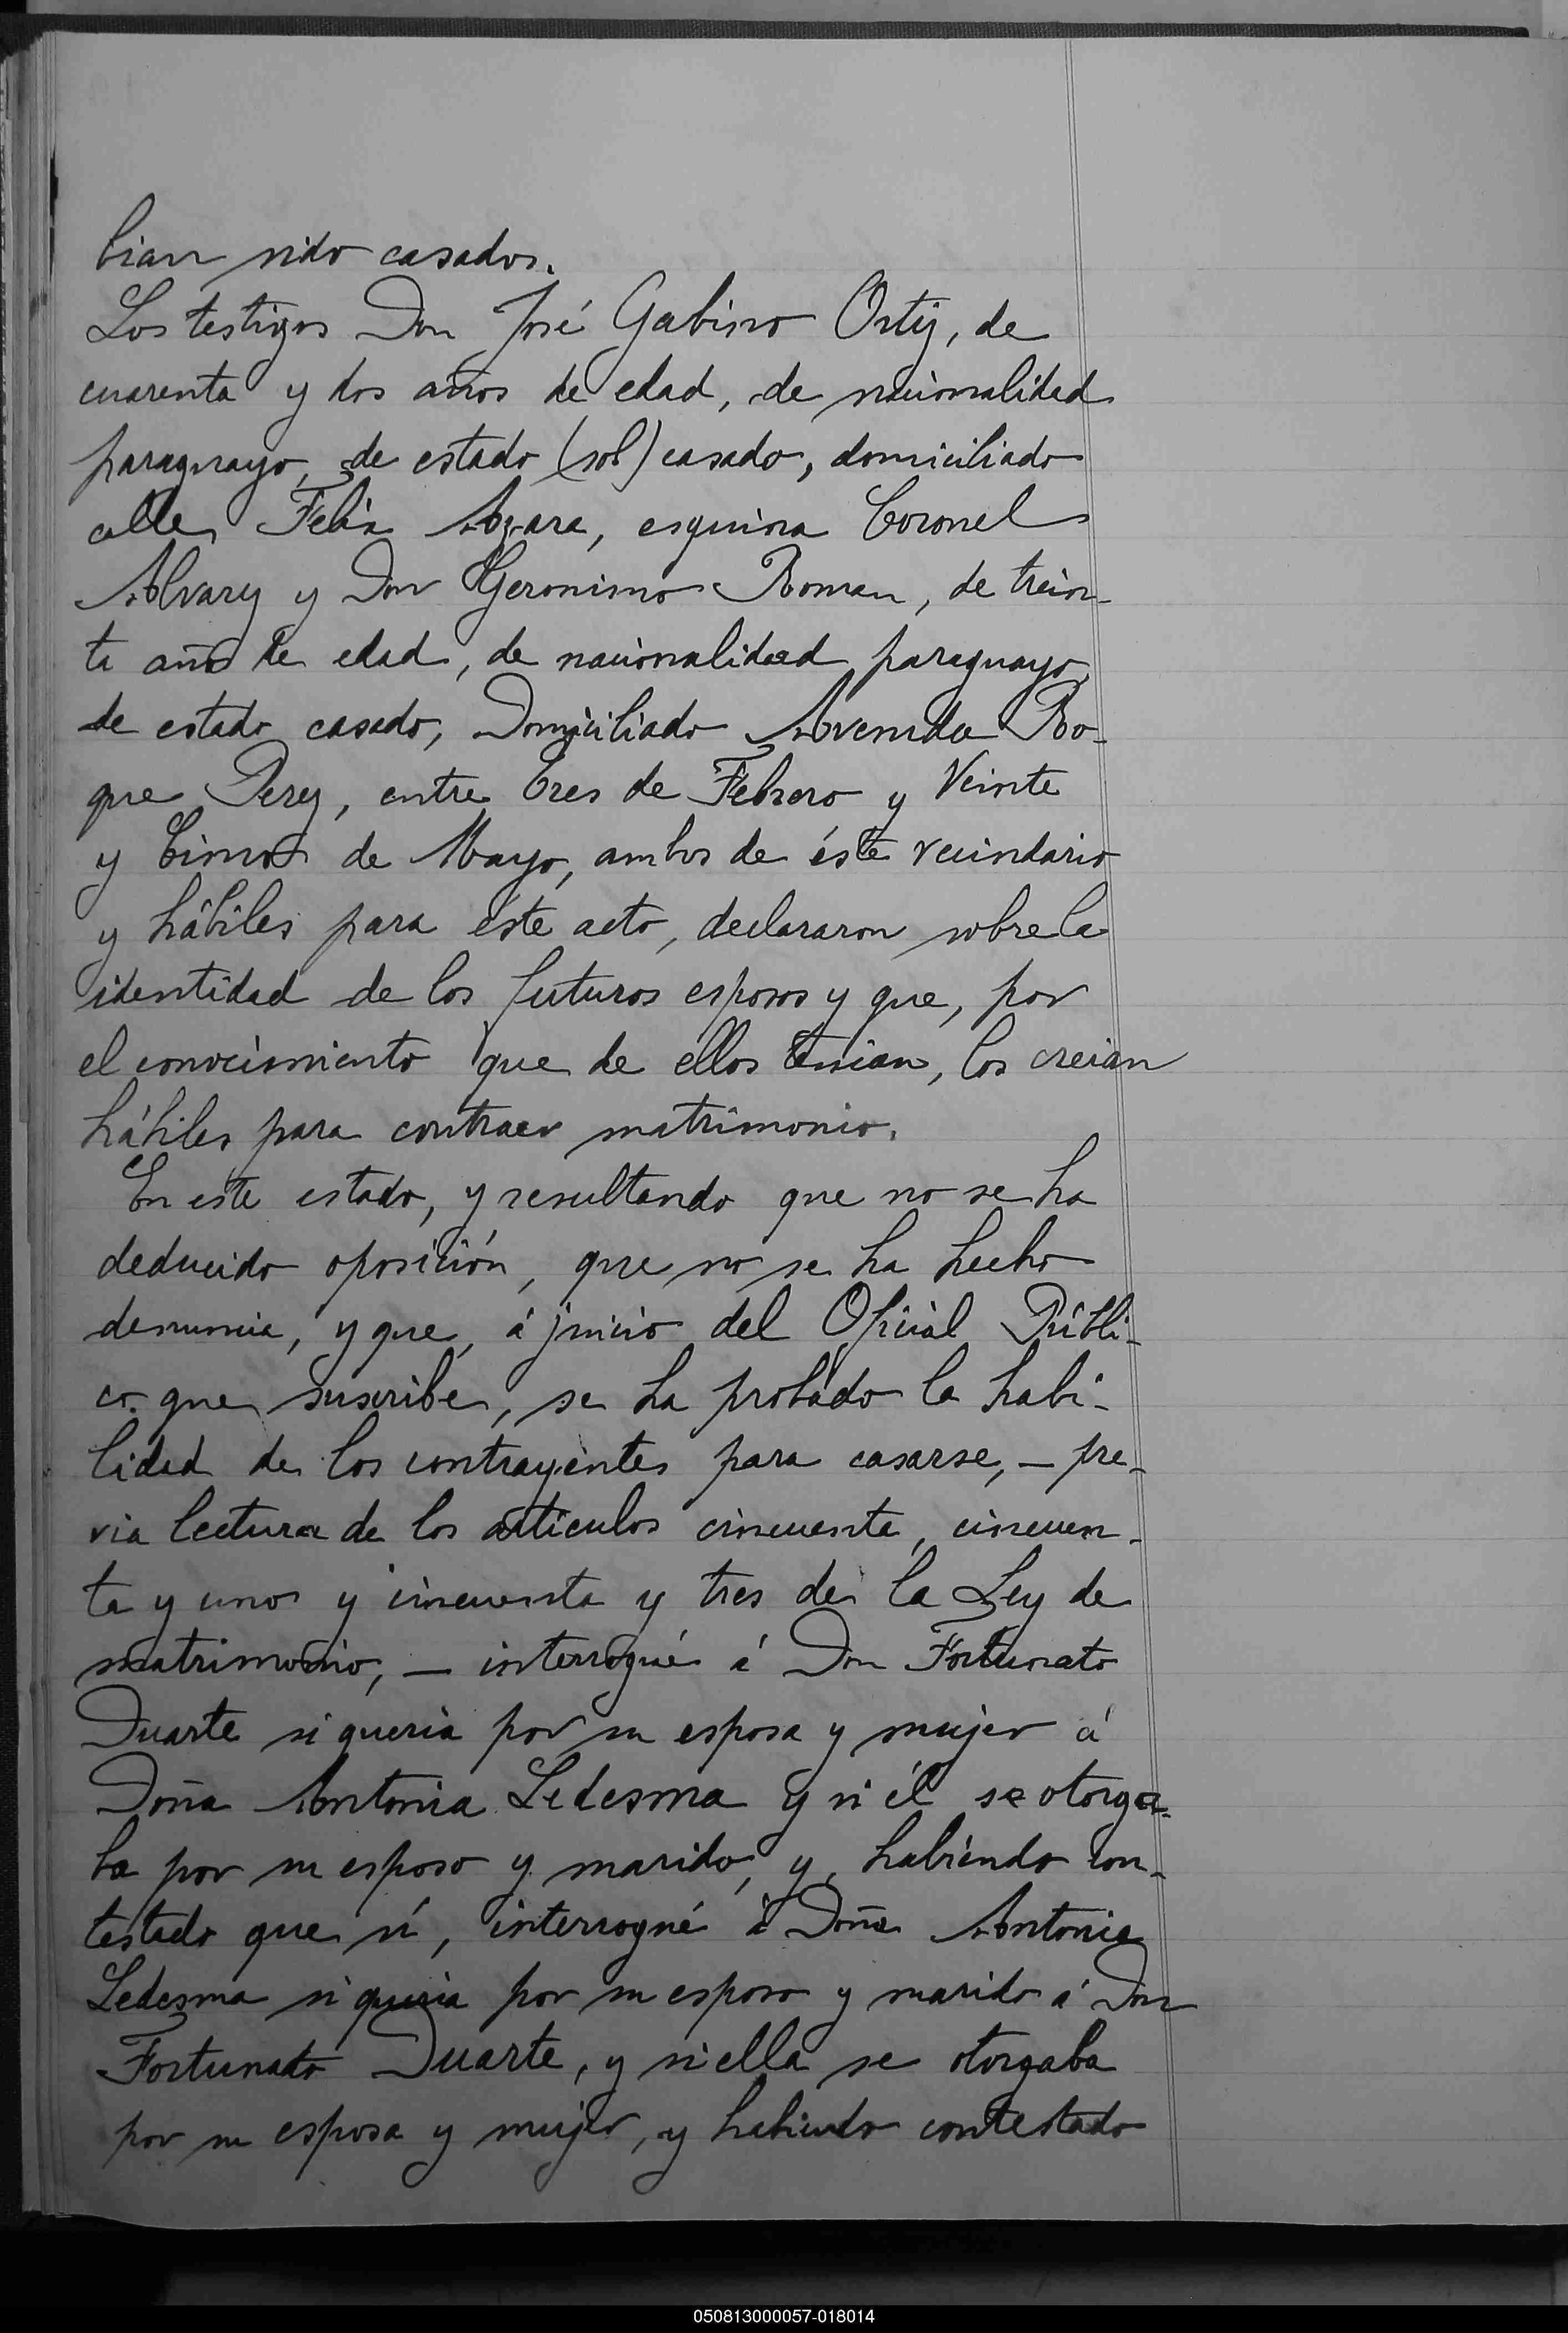 bian sido casados.
Los testigos Don José Gabino Ortiz, de
cuarenta y dos años de edad, de nacionalidad
paraguayo, de estado (sol) casado, domiciliado
calle Felix Azara, esquina Coronel
Alvarez y Don Geronimo Roman, de trein-
ta años de edad, de nacionalidad paraguayo,
de estado casado, Domiciliado Avenida Ro-
que Perez, entre Tres de Febrero y Veinte
y Cinco de Mayo, ambos de éste vecindario
y hábiles para éste acto, declararon sobre la
identidad de los futuros esposos y que, por
el conocimiento que de ellos tenian, los creian
hábiles para contraer matrimonio.
En este estado, y resultando que no se ha
deducido oposición, que no se ha hecho
denuncia, y que, á juicio del Oficial Públi-
co que suscribe, se ha probado la habi-
lidad de los contrayentes para casarse, — pre-
via lectura de los artículos cincuenta, cincuen-
ta y uno y cincuenta y tres de la Ley de
matrimonio, — interrogué á Don Fortunato
Duarte si queria por su esposa y mujer á
Doña Antonia Ledesma y si él se otorga-
ba por su esposo y marido, y, habiendo con-
testado que sí, interrogué á Doña Antonia
Ledesma si queria por su esposo y marido á Don
Fortunato Duarte, y si ella se otorgaba
por su esposa y mujer, y habiendo contestado
050813000057-018014